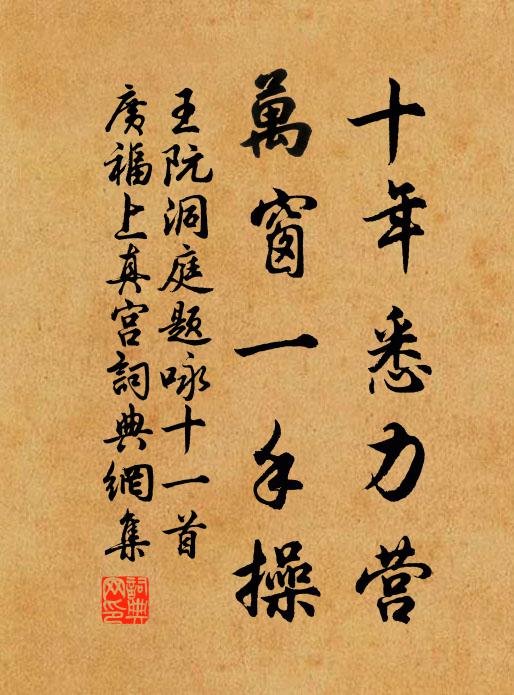 十年悉力营
萬窗一手操
王阮洞庭題咏十一首
廣福上真宫詞典網集
詞典网印